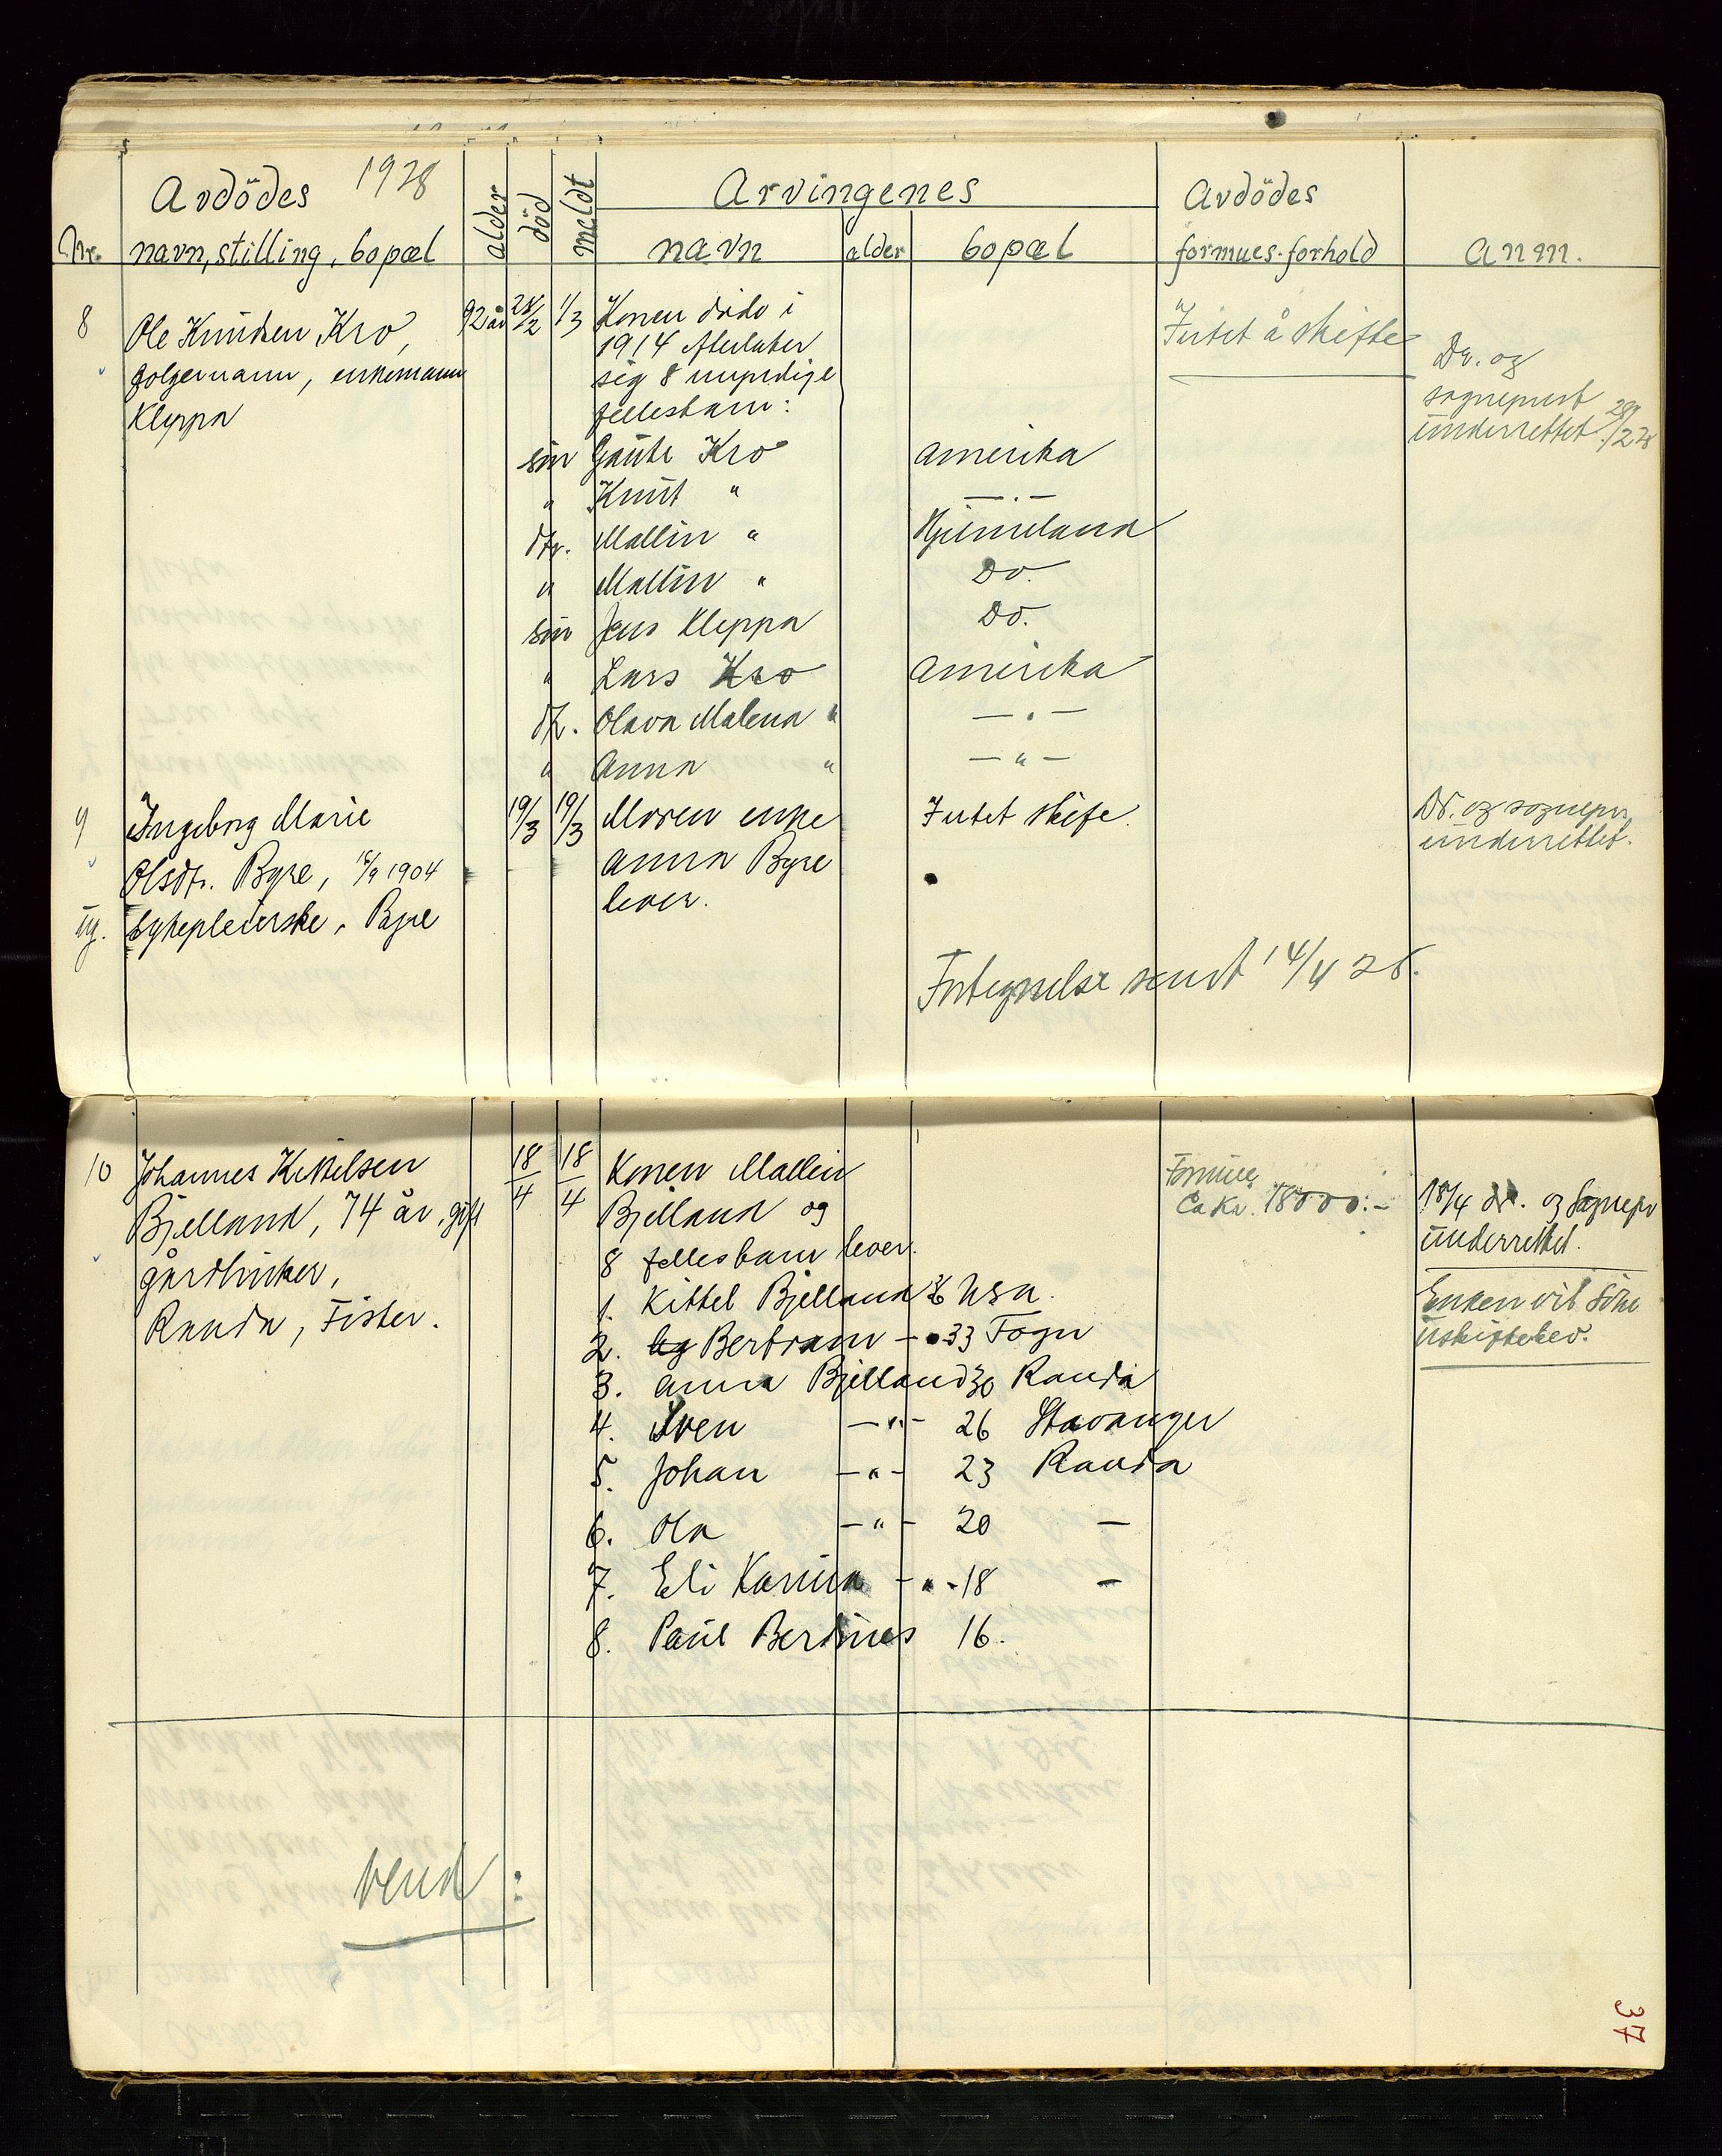 Avdödes 1928
Nr. navn, stilling, bopæl
alder
död
meldt
Arvingenes
navn alder bopæl
Avdödes
formues-forhold
Anm.
8 Ole Knudsen Kro, 92 år 28/2 1/3 Konen døde i
folgemann, enkemann 1914 efterlater
Kleppa sig 8 myndige
fellesbarn:
Intet å skifte
Dr. og
sogneprest
underrettet
søn Gaute Kro Amerika
" Knut " — . —
dtr. Mallin " Hjelmeland
" Mallin " Do.
søn Jens Kleppa Do.
" Lars Kro Amerika
dtr. Olava Malena " — . —
" Anna " — " —
9 Ingeborg Marie 19/3 19/3 Moren enke Intet skifte.
Olsdtr. Byre, 1904 Anna Byre
ug. sykepleierske, Byre lever.
Dr. og sognepr.
underrettet.
Fortegnelse sendt 14/4 28.
10 Johannes Kittelsen 18/4 18/4 Konen Mallin
Bjelland, 74 år, gift Bjelland og
gårdbruker, 8 fellesbarn lever.
Randa, Fister.
Formue
Ca Kr. 18000:-
18/4 dr. og Sognepr
underrettet.
Enken vil söke
uskiftebev.
1. Kittel Bjelland 36 Usa.
2. Bertram — " 33 Fogn
3. Anna Bjelland 30 Randa
4. Sven — " — 26 Stavanger
5. Johan — " — 23 Randa
6. Ola — " — 20 —
7. Eli Karina — " — 18 —
8. Paul Berdines 16.
Vend :
37